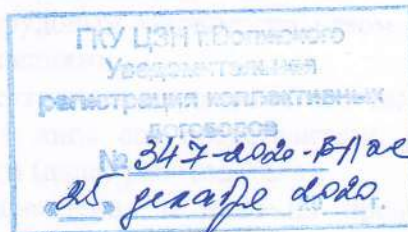 ГКУ ЦЗН г.Волжского
Уведомительная
регистрация коллективных
договоров
№ 347-2020-В/Лас
«25» декабря 2020 г.